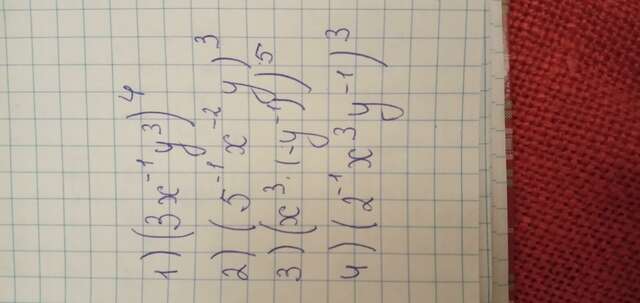 1) (3x⁻¹y³)⁴
2) (5⁻¹x⁻²y)³
3) (x³·(-y⁻¹))⁵
4) (2⁻¹x³y⁻¹)³